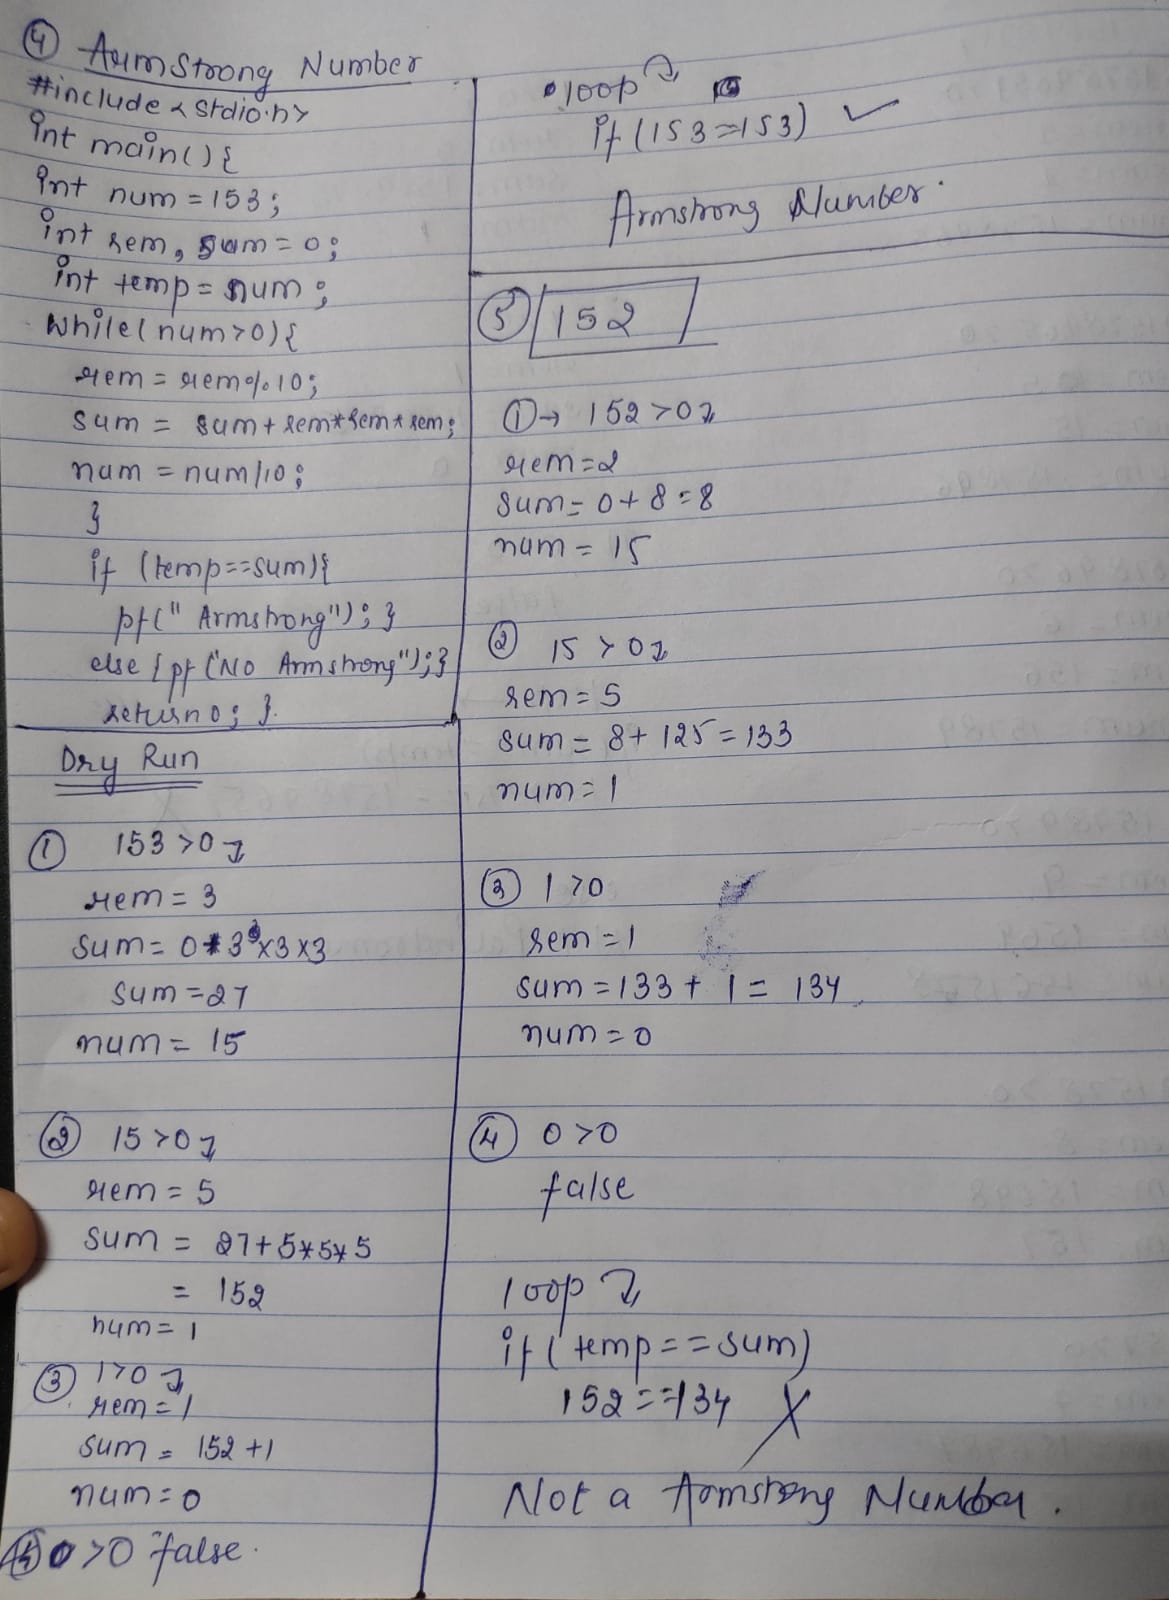 4 Armstrong Number
#include <stdio.h>
int main() {
int num = 153;
int rem, sum = 0;
int temp = num;
while(num>0){
rem = rem%10;
sum = sum+rem*rem*rem;
num = num/10;
}
if (temp==sum){
pf(" Armstrong"); }
else {pf("No Armstrong");}
return 0; }
Dry Run
① 153>0
rem = 3
sum = 0+3×3×3
sum = 27
num = 15
② 15>0
rem = 5
sum = 27+5*5*5
= 152
num = 1
③ 1>0
rem = 1
sum = 152+1
num = 0
④ 0>0 false.
loop
if (153==153) ✓
Armstrong Number.
⑤ 152
① → 152>0
rem=2
sum = 0+8=8
num = 15
② 15>0
rem = 5
sum = 8+125=133
num = 1
③ 1>0
rem = 1
sum = 133+1= 134
num = 0
④ 0>0
false
loop
if (temp==sum)
152==134 X
Not a Armstrong Number.